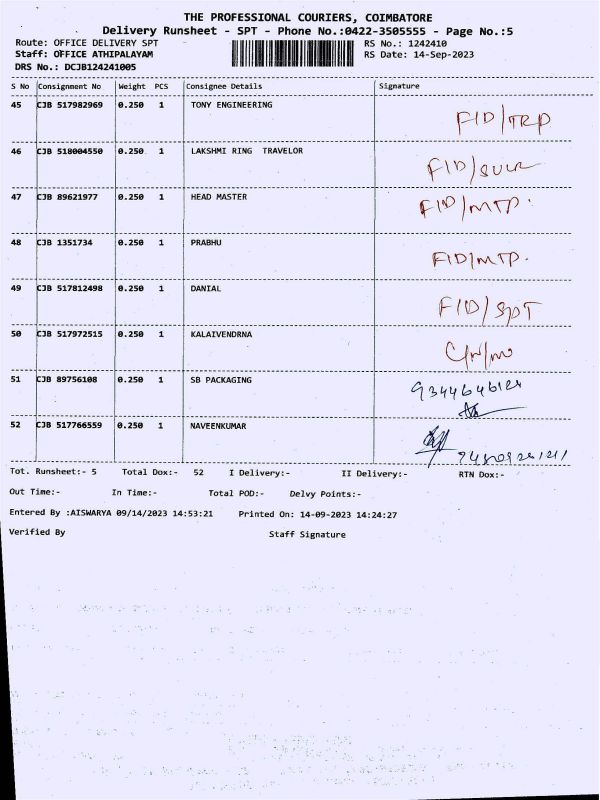 THE PROFESSIONAL COURIERS, COIMBATORE
Delivery Runsheet - SPT - Phone No.:0422-3505555 - Page No.:5
Route: OFFICE DELIVERY SPT RS No.: 1242410
Staff: OFFICE ATHIPALAYAM RS Date: 14-Sep-2023
DRS No.: DCJB124241005
S No Consignment No Weight PCS Consignee Details Signature
45 CJB 517982969 0.250 1 TONY ENGINEERING FID/TRP
46 CJB 518004550 0.250 1 LAKSHMI RING TRAVELOR FID/SULR
47 CJB 89621977 0.250 1 HEAD MASTER FID/MTP.
48 CJB 1351734 0.250 1 PRABHU FID/MTP.
49 CJB 517812498 0.250 1 DANIAL FID/SPT
50 CJB 517972515 0.250 1 KALAIVENDRNA
51 CJB 89756108 0.250 1 SB PACKAGING
52 CJB 517766559 0.250 1 NAVEENKUMAR
Tot. Runsheet:- 5 Total Dox:- 52 I Delivery:- II Delivery:- RTN Dox:-
Out Time:- In Time:- Total POD:- Delvy Points:-
Entered By :AISWARYA 09/14/2023 14:53:21 Printed On: 14-09-2023 14:24:27
Verified By Staff Signature